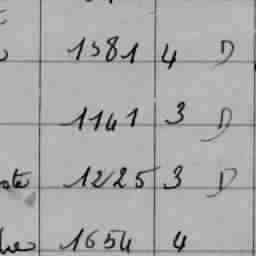 1381 4 D
1141 3 D
1225 3 D
1654 4